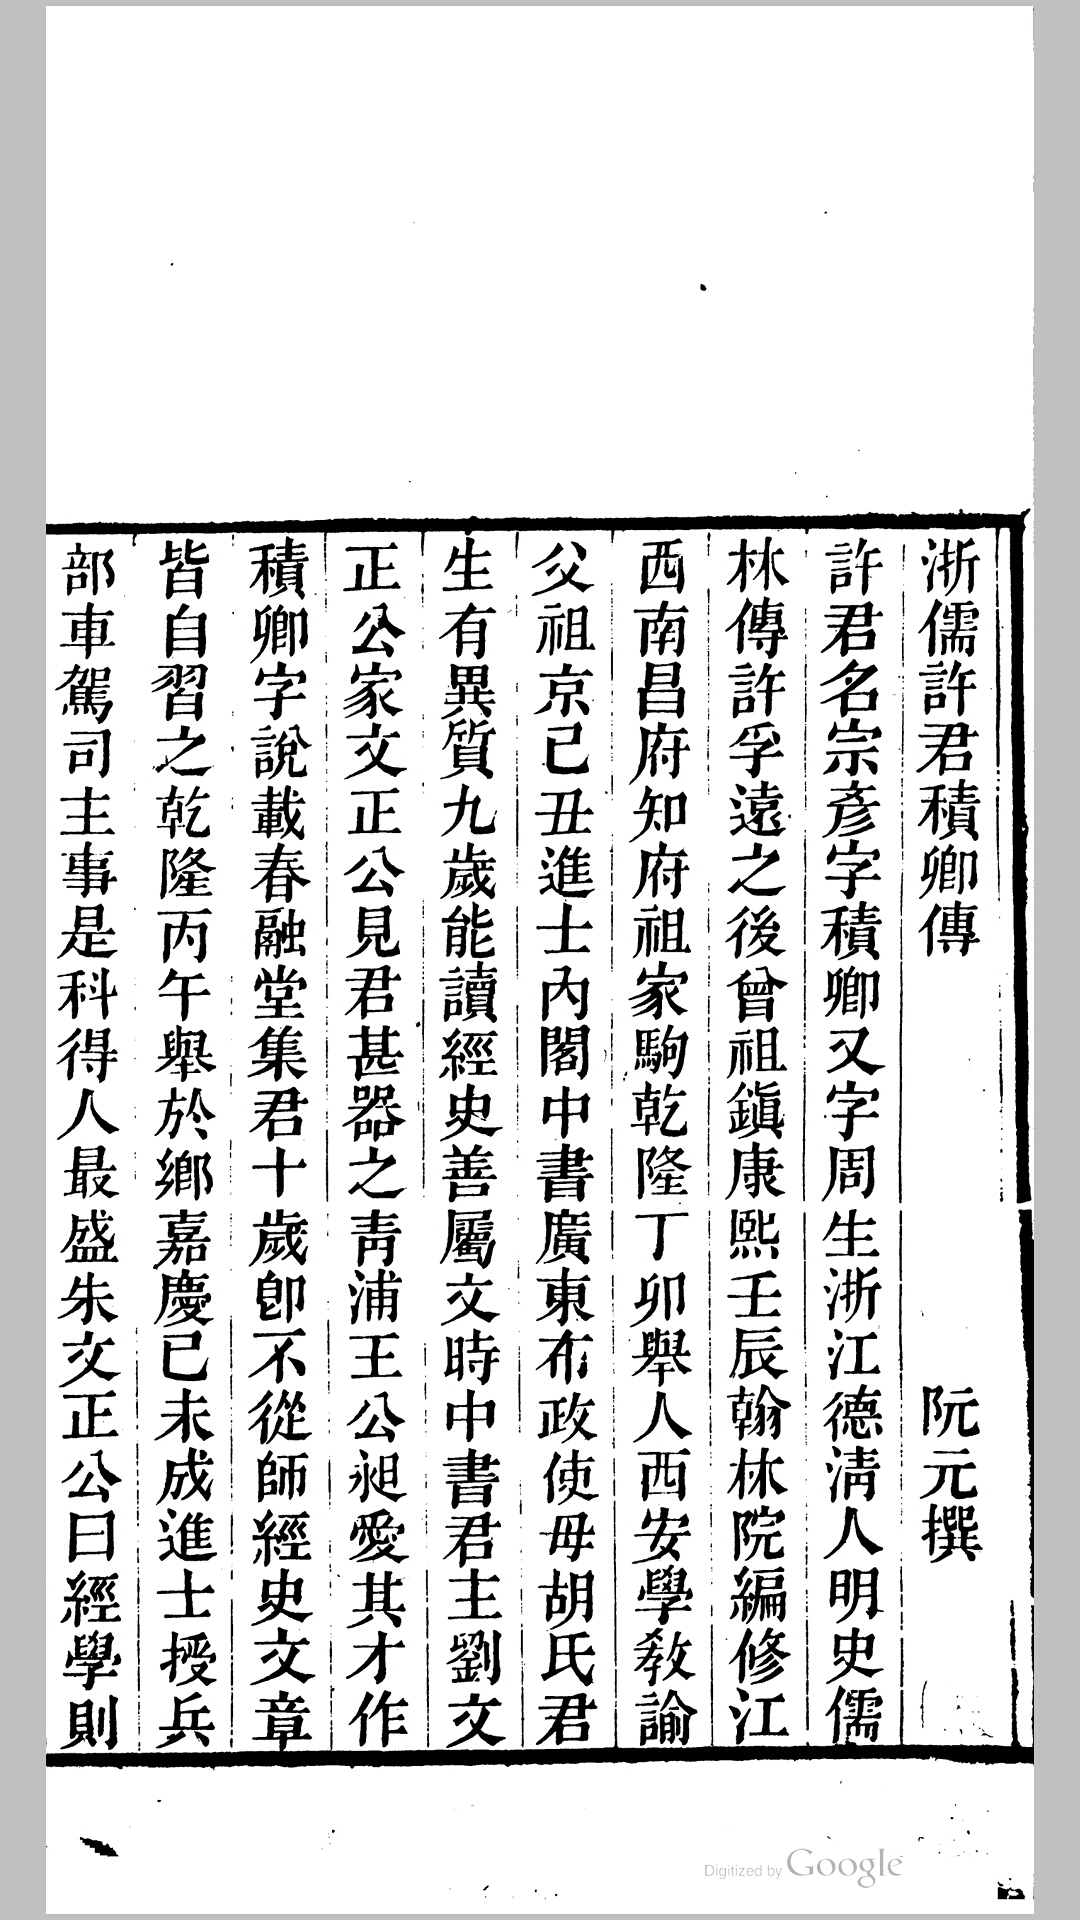 浙儒許君積卿傳 阮元撰
許君名宗彥字積卿又字周生浙江德淸人明史儒
林傳許孚遠之後曾祖鎭康熙壬辰翰林院編修江
西南昌府知府祖家駒乾隆丁卯舉人西安學敎諭
父祖京己丑進士內閣中書廣東布政使母胡氏君
生有異質九歲能讀經史善屬文時中書君主劉文
正公家文正公見君甚器之靑浦王公昶愛其才作
積卿字說載春融堂集君十歲卽不從師經史文章
皆自習之乾隆丙午舉於鄉嘉慶己未成進士授兵
部車駕司主事是科得人最盛朱文正公曰經學則
Digitized by Google